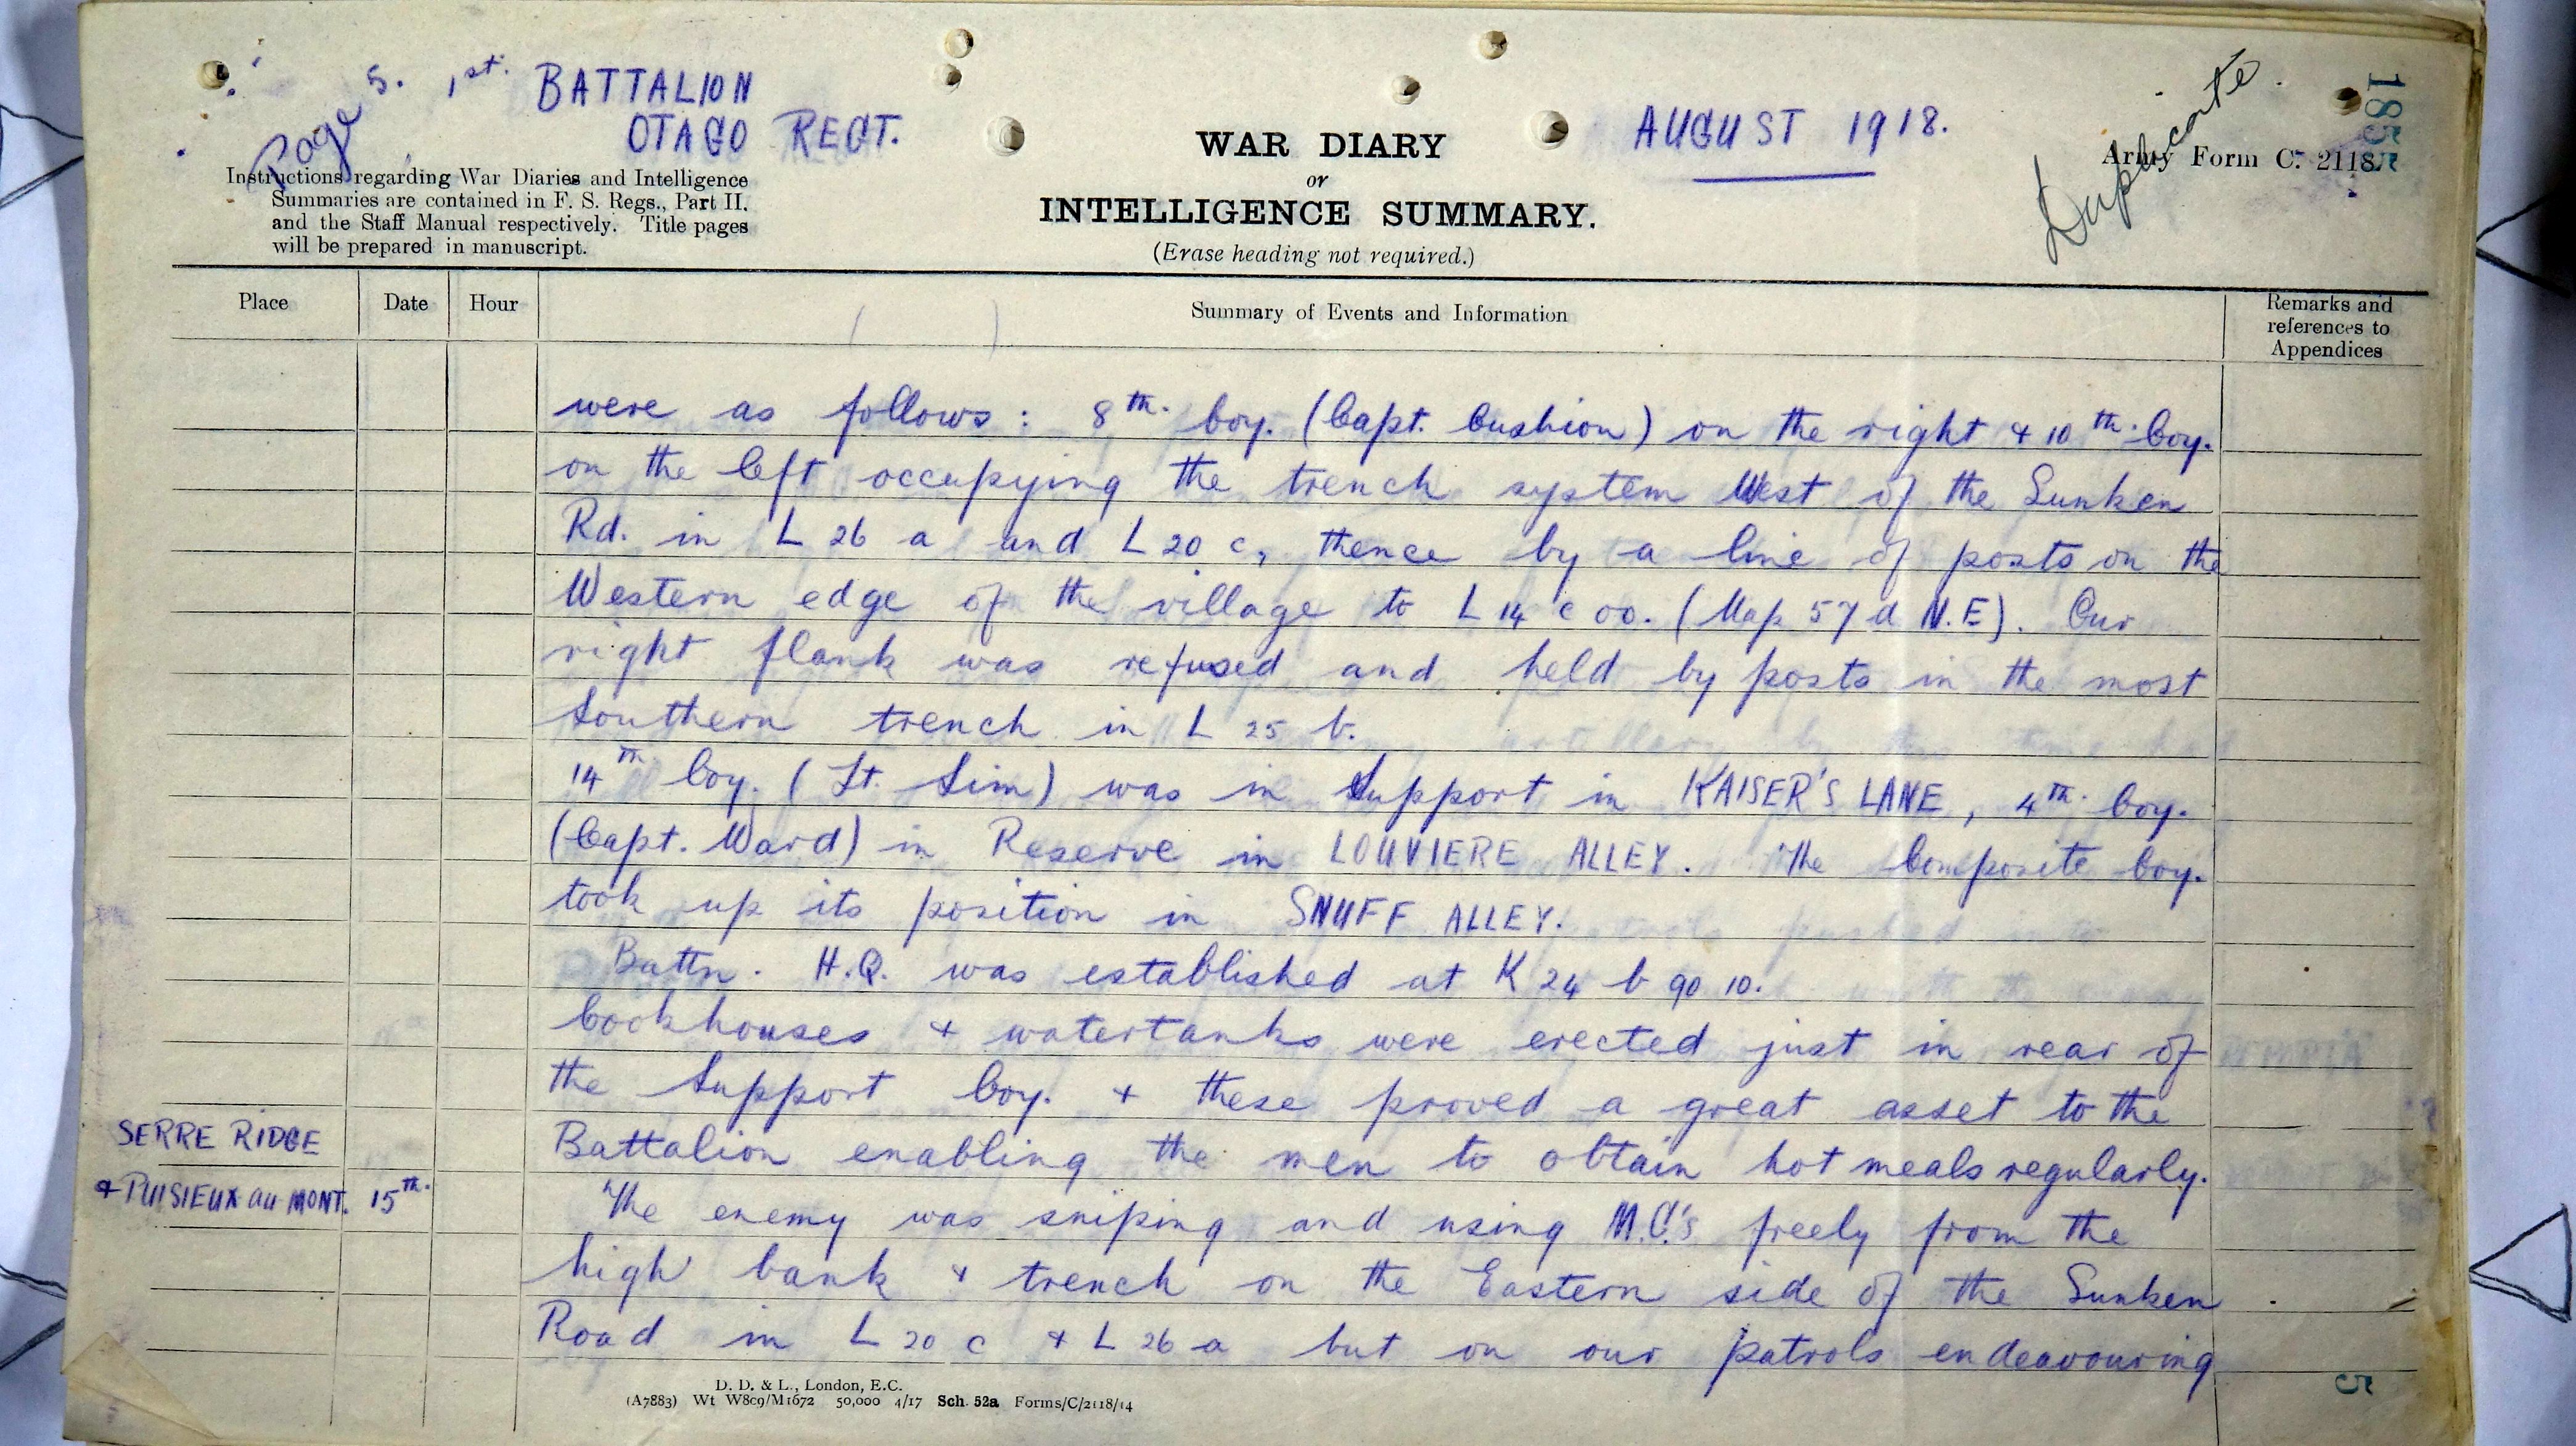 Page 5. 1st. BATTALION
OTAGO REGT.
AUGUST 1918.
Duplicate
1855
WAR DIARY
or
INTELLIGENCE SUMMARY.
(Erase heading not required.)
Army Form C. 2118.
Instructions regarding War Diaries and Intelligence
Summaries are contained in F. S. Regs., Part II.
and the Staff Manual respectively. Title pages
will be prepared in manuscript.
Place Date Hour Summary of Events and Information Remarks and
references to
Appendices
were as follows: 8th. Coy. (Capt. Cushion) on the right & 10th. Coy.
on the left occupying the trench system West of the Sunken
Rd. in L 26 a and L 20 c, thence by a line of posts on the
Western edge of the village to L 14 c 00. (Map 57 d N.E). Our
right flank was refused and held by posts in the most
Southern trench in L 25 b.
14th Coy. (Lt. Sim) was in Support in KAISER'S LANE, 4th. Coy.
(Capt. Ward) in Reserve in LOUVIERE ALLEY. The Composite Coy.
took up its position in SNUFF ALLEY.
Battn. H.Q. was established at K 24 b 90 10.
Cookhouses & watertanks were erected just in rear of
the Support Coy. & these proved a great asset to the
SERRE RIDGE Battalion enabling the men to obtain hot meals regularly.
& PUISIEUX au MONT. 15th. The enemy was sniping and using M.G's freely from the
high bank & trench on the Eastern side of the Sunken
Road in L 20 c & L 26 a but on our patrols endeavouring
D. D. & L., London, E.C.
(A7883) Wt W809/M1672 50,000 4/17 Sch. 52a Forms/C/2118/14
5